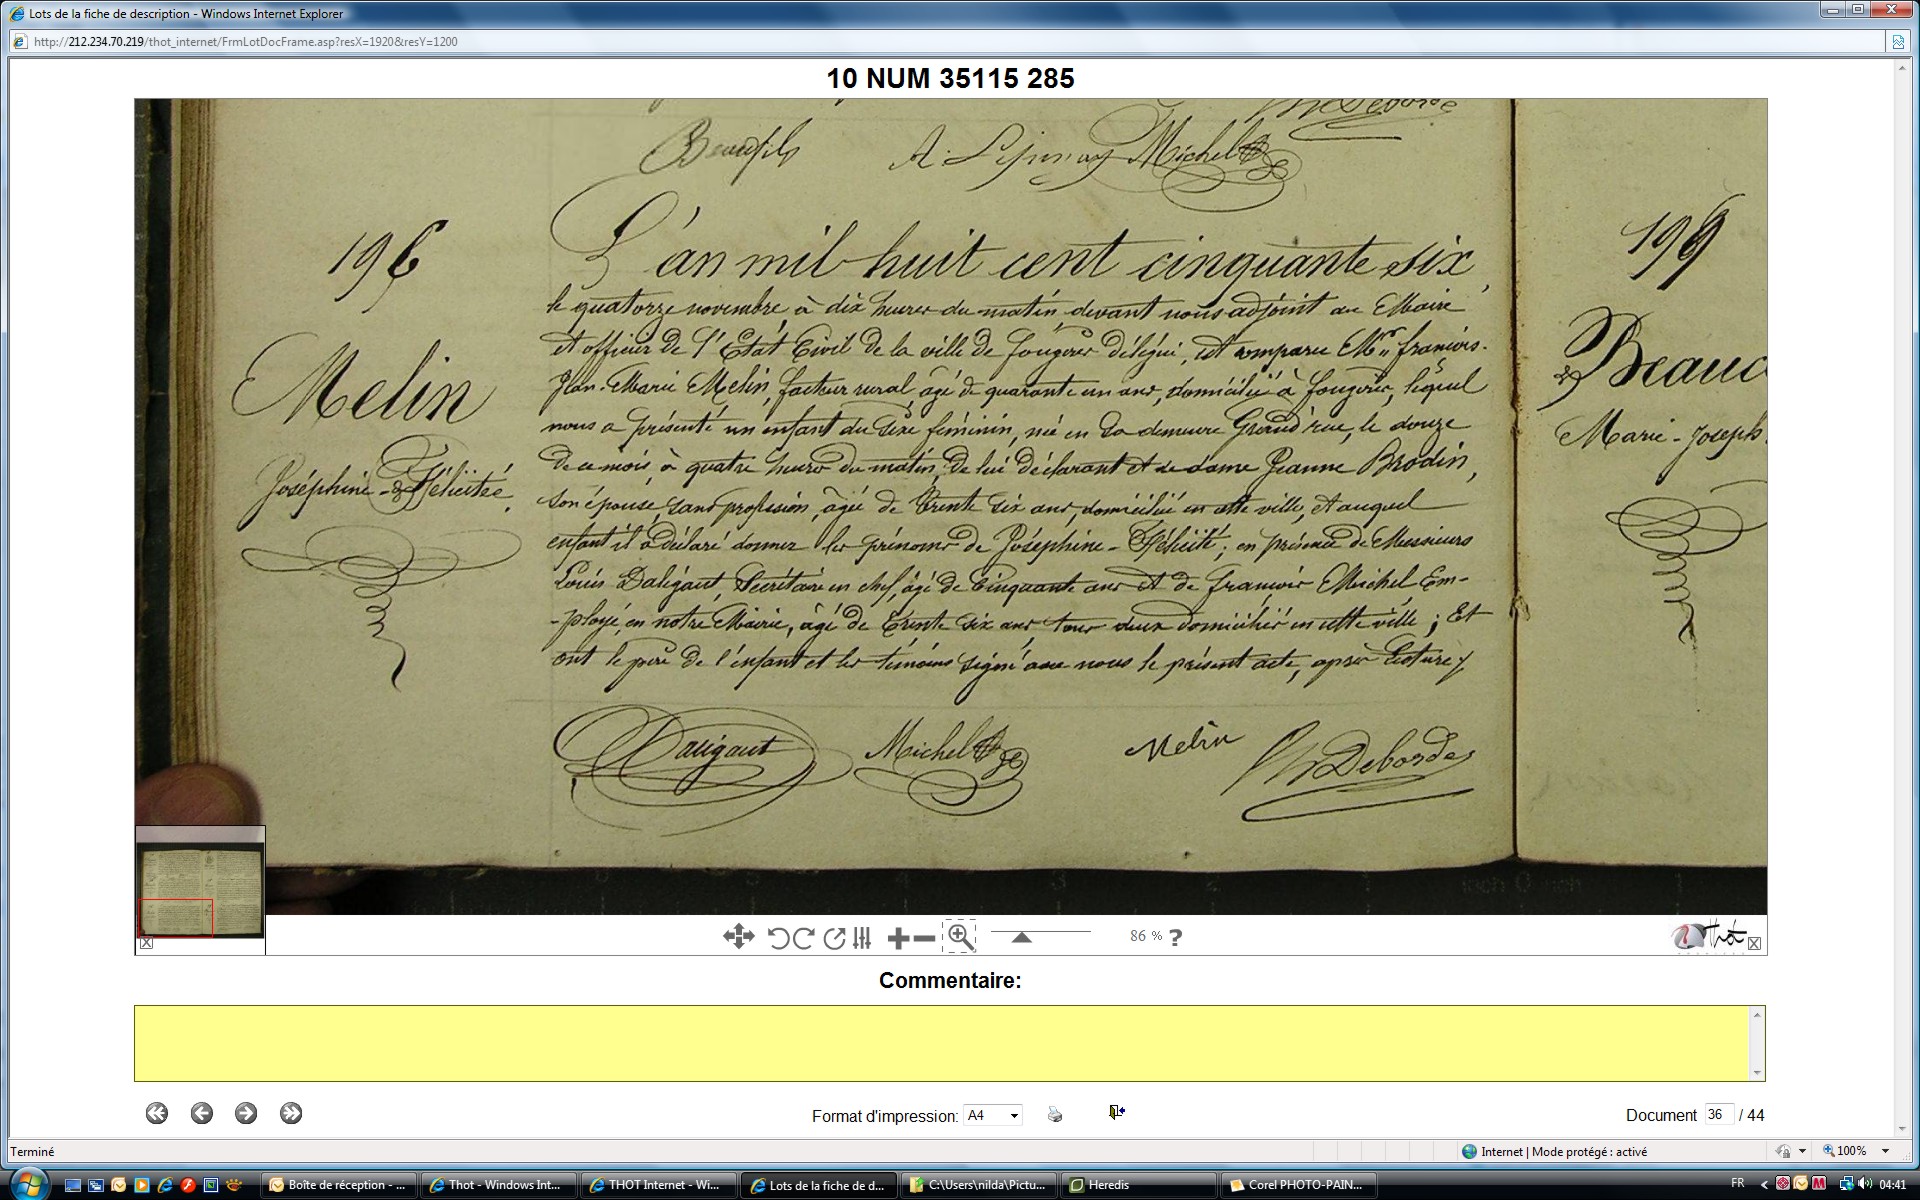 Lots de la fiche de description - Windows Internet Explorer
http://212.234.70.219/thot_internet/FrmLotDocFrame.asp?resX=1920&resY=1200
10 NUM 35115 285
Debordes
Beaufils A. Michel
196
L'an mil huit cent cinquante six,
le quatorze novembre à dix heures du matin devant nous adjoint au Maire
et officier de l'Etat Civil de la ville de fougères délégué, est comparu Mr. françois-
Jean-Marie Melin, facteur rural, âgé de quarante un ans, domicilié à fougères, lequel
nous a présenté un enfant du sexe féminin, né en sa demeure Grand'rue, le douze
de ce mois, à quatre heures du matin, de lui déclarant et de dame Jeanne Brodin,
son épouse, sans profession, âgée de trente six ans, domiciliée en cette ville, et auquel
enfant il a déclaré donner les prénoms de Joséphine-Félicité; en présence de Messieurs
Louis Daligaut, Secrétaire en chef, âgé de Cinquante ans et de françois Michel, Em-
-ployé, en notre Mairie, âgé de trente six ans tous deux domiciliés en cette ville; Et
ont le père de l'enfant et les témoins signé avec nous le présent acte, après lecture
Melin
Joséphine-Félicitée,
Daligaut Michel Melin Debordes
199
Beauc
Marie-Joseph
inch 0 inch
86 % ?
Thot
Commentaire:
Format d'impression: A4
Document 36 / 44
Terminé
Internet | Mode protégé : activé
100%
Boîte de réception - ...
Thot - Windows Int...
THOT Internet - Wi...
Lots de la fiche de d...
C:\Users\nilda\Pictu...
Heredis
Corel PHOTO-PAIN...
FR
04:41